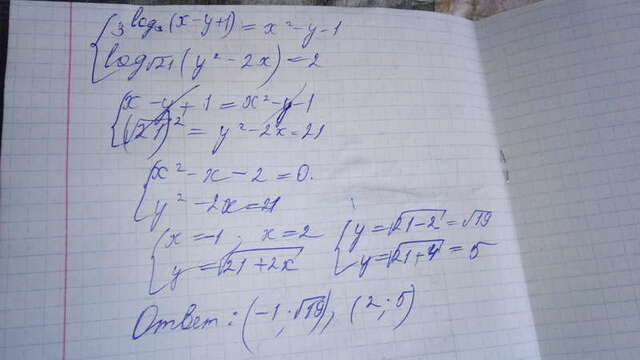 { 3^log₃(x-y+1) = x²-y-1
log√21(y²-2x) = 2
{ x-y+1 = x²-y-1
(√21)² = y²-2x=21
{ x²-x-2=0.
y²-2x=21
{ x=-1; x=2 { y=√21-2=√19
y=√21+2x y=√21+4=5
Ответ: (-1;√19), (2;5)